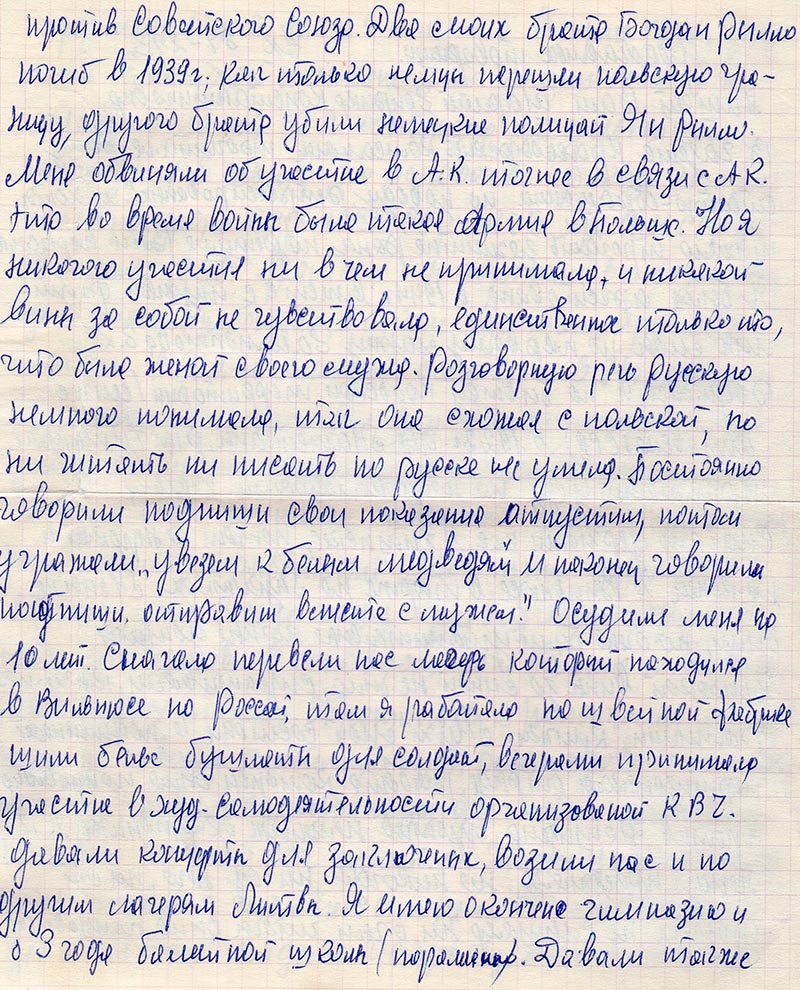 против Советского Союза. Два моих брата Богдан Рилло
погиб в 1939г; как только немцы перешли польскую гра-
ницу, другого брата убили немецкие полицай Ян Рилло.
Мене обвиняли об участие в А.К. точнее в связи с АК.
что во время войны была такая Армия в Польши. Но я
никакого участия ни в чем не принимала, и никакой
вины за собой не чувствовала, единственная только то,
что была женой своего мужа. Разговорную речь русскую
немного понимала, так она схожая с польской, но
ни читать ни писать по русске не умела. Постоянно
говорили подпиши свои показание отпустим, потом
угражали „увезем к белым медведям и наконец говорили
подпиши, отправим вместе с мужем." Осудили меня на
10 лет. Сначало перевели нас лагерь который находился
в Вильнюсе на Россай, там я работала на швейной фабрике
шили белье бушлаты для солдат, вечерами принимала
участие в худ. самодеятельности организованой КВЧ.
давали концерты для заключеных, возили нас и по
другим лагерям Литвы. Я имею окончено гимназию и
3 года балетной школы Давали также